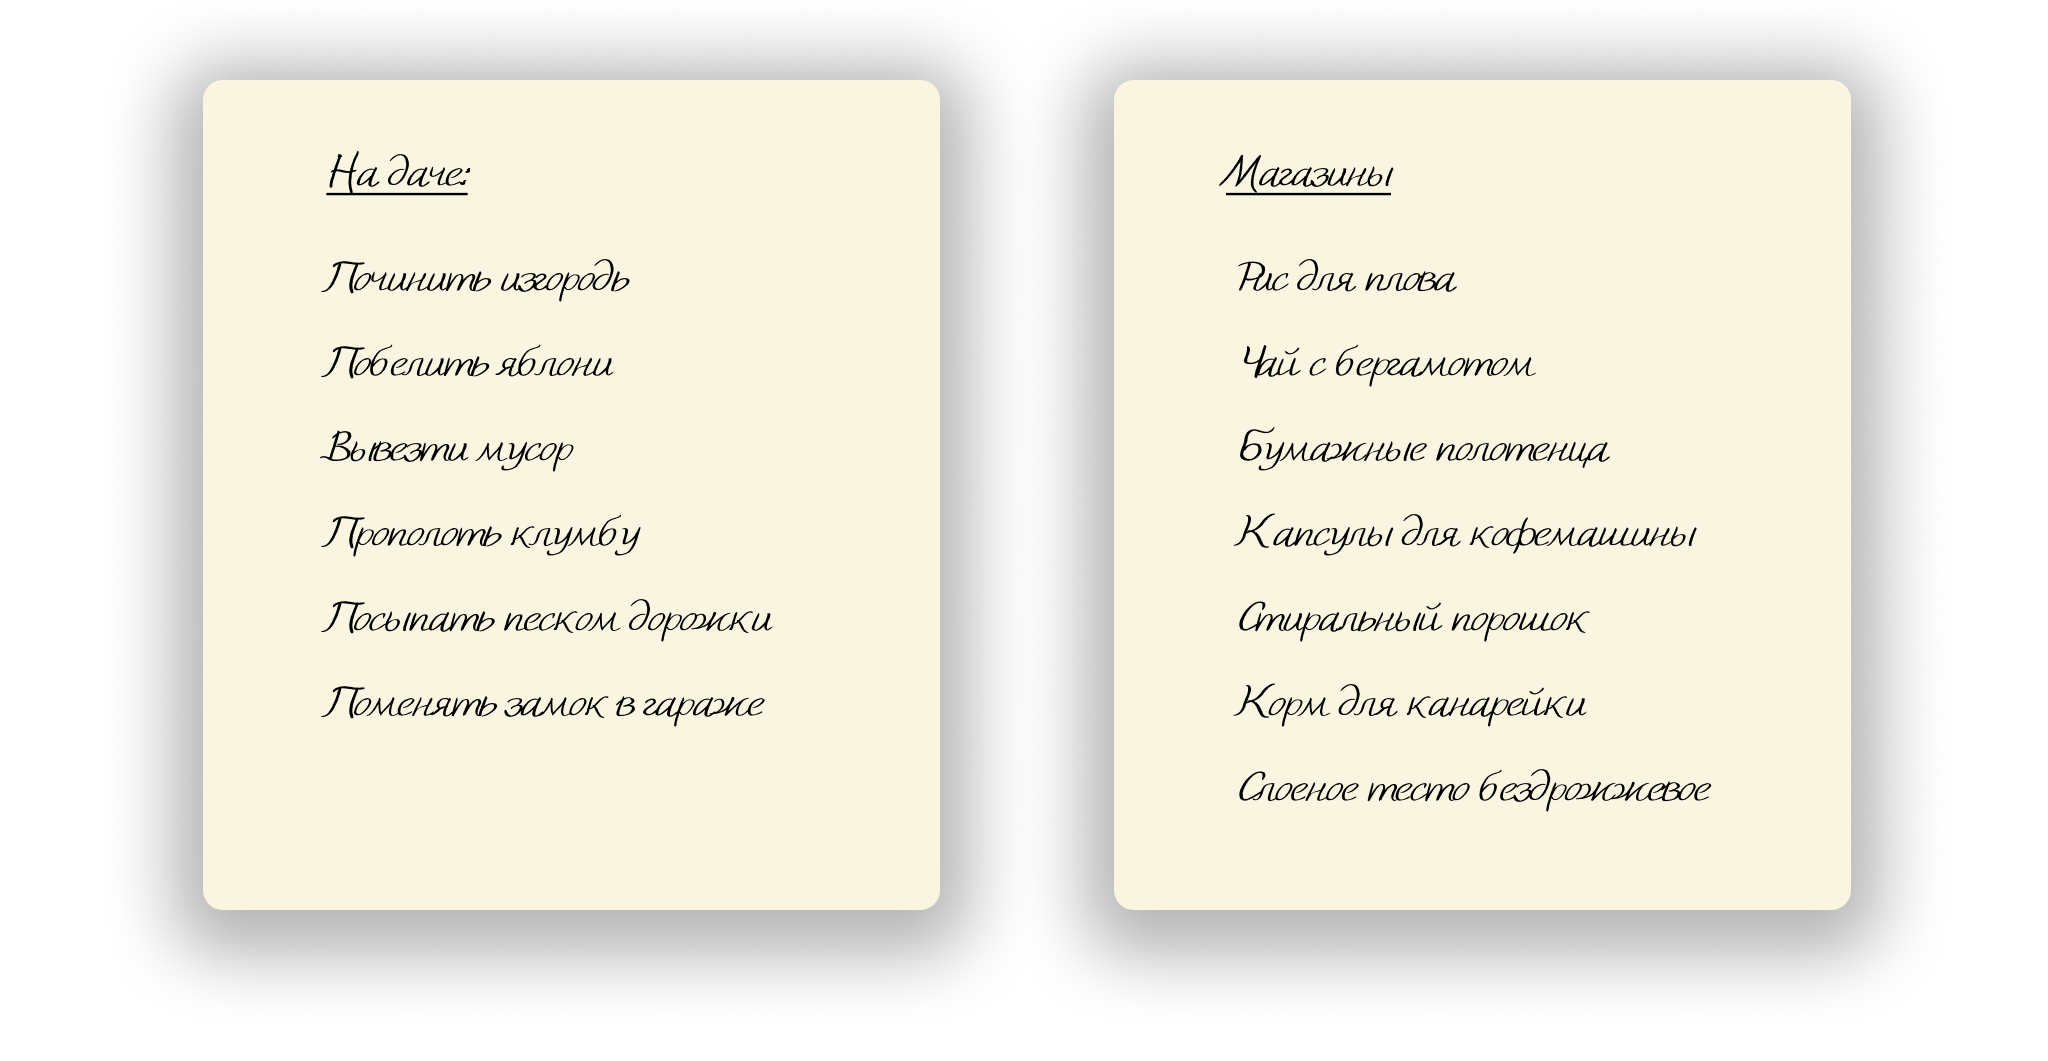 На даче:
Починить изгородь
Побелить яблони
Вывезти мусор
Прополоть клумбу
Посыпать песком дорожки
Поменять замок в гараже
Магазины
Рис для плова
Чай с бергамотом
Бумажные полотенца
Капсулы для кофемашины
Стиральный порошок
Корм для канарейки
Слоеное тесто бездрожжевое